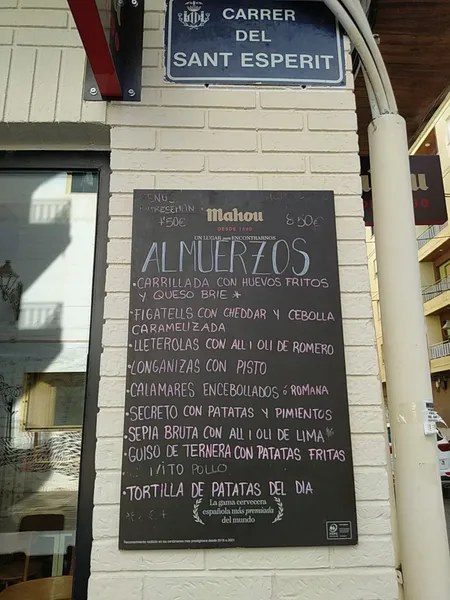 CARRER
DEL
SANT ESPERIT
Mahou
DESDE 1890
8'50€
UN LUGAR PARA ENCONTRARNOS
ALMUERZOS
·CARRILLADA CON HUEVOS FRITOS
Y QUESO BRIE *
·FIGATELLS CON CHEDDAR Y CEBOLLA
CARAMELIZADA
·LLETEROLAS CON ALL I OLI DE ROMERO
·LONGANIZAS CON PISTO
·CALAMARES ENCEBOLLADOS ó ROMANA
·SECRETO CON PATATAS Y PIMIENTOS
·SEPIA BRUTA CON ALL I OLI DE LIMA
·GUISO DE TERNERA CON PATATAS FRITAS
POLLO
·TORTILLA DE PATATAS DEL DIA
La gama cervecera
española más premiada
del mundo